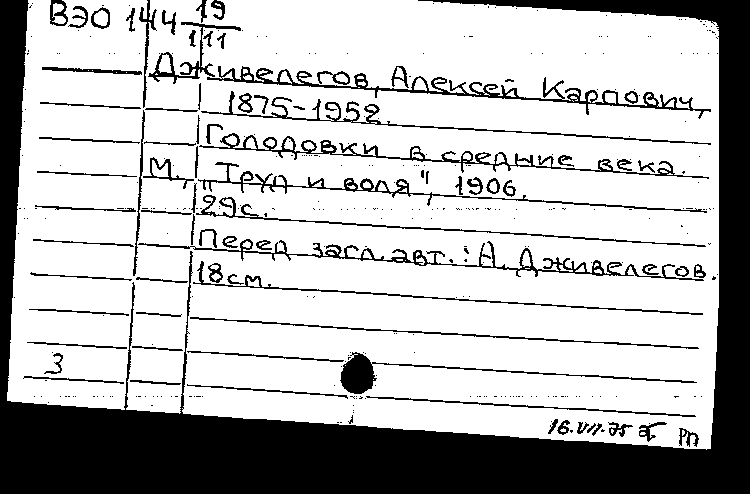 ВЭО 144 19/111
Дживелегов, Алексей Карпович,
1875-1952.
Голодовки в средние века.
М., „Труд и воля", 1906.
29с.
Перед загл. авт.: А. Дживелегов.
18см.
3
16.VII.75 РП